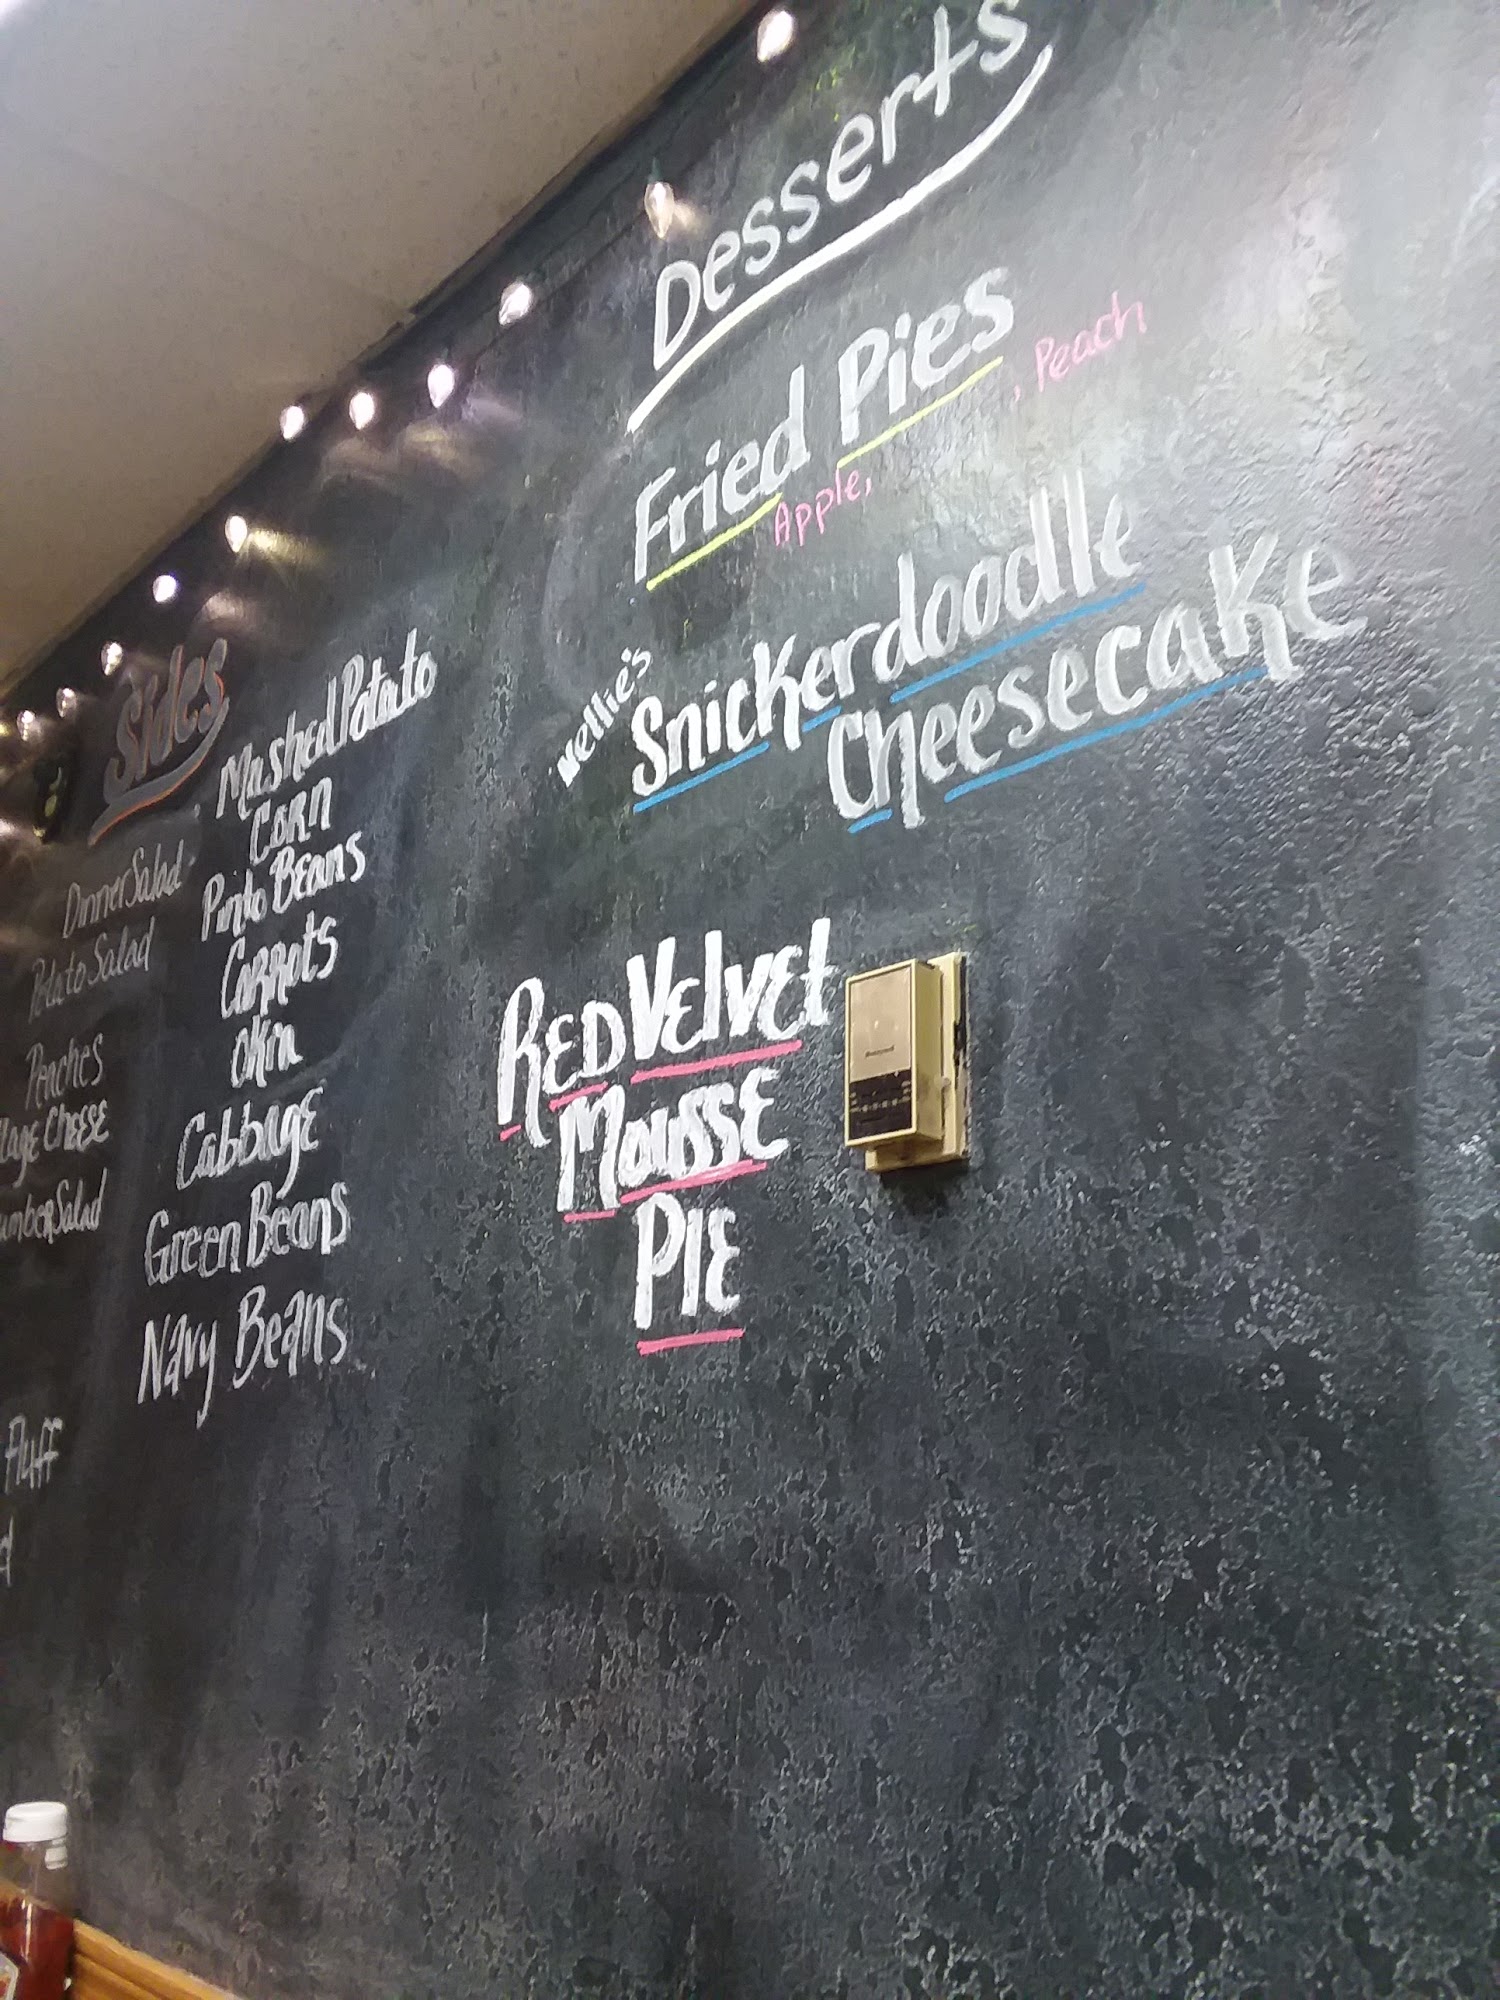 Desserts
Fried Pies
Apple, , Peach
Nellie's
Snickerdoodle
Cheesecake
Red Velvet
Mousse
Pie
Sides
Mashed Potato
Corn
Pinto Beans
Carrots
Cabbage
Green Beans
Navy Beans
Dinner Salad
Potato Salad
Peaches
Cheese
Salad
Fluff